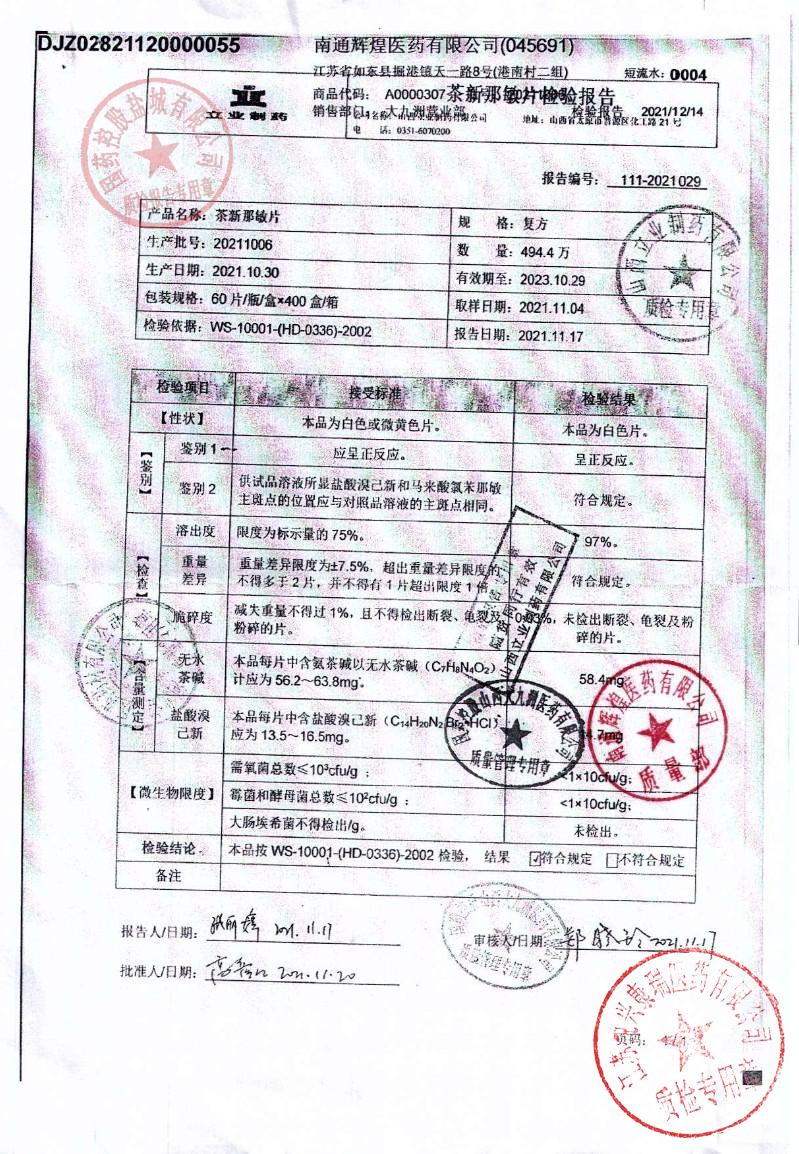 DJZ02821120000055
南通辉煌医药有限公司(045691)
江苏省如东县掘港镇天一路8号(港南村二组)
短流水：0004
商品代码： A0000307
茶新那敏片检验报告
销售部门：大九洲营业部
检验报告 2021/12/14
立业制药
地址：山西省太原市晋源区化工路 21 号
电 话：0351-6070200
报告编号：111-2021029
产品名称：茶新那敏片
规 格：复方
生产批号：20211006
数 量：494.4 万
生产日期：2021.10.30
有效期至：2023.10.29
包装规格：60 片/瓶/盒×400 盒/箱
取样日期：2021.11.04
检验依据：WS-10001-(HD-0336)-2002
报告日期：2021.11.17
检验项目 接受标准 检验结果
【性状】 本品为白色或微黄色片。 本品为白色片。
【鉴别】
鉴别 1 应呈正反应。 呈正反应。
鉴别 2 供试品溶液所显盐酸溴己新和马来酸氯苯那敏
主斑点的位置应与对照品溶液的主斑点相同。 符合规定。
【检查】
溶出度 限度为标示量的 75%。 97%。
重量
差异
重量差异限度为±7.5%，超出重量差异限度的
不得多于 2 片，并不得有 1 片超出限度 1 倍 符合规定。
脆碎度 减失重量不得过 1%，且不得检出断裂、龟裂及
粉碎的片。
0.03%，未检出断裂、龟裂及粉
碎的片。
【含量测定】
无水
茶碱
本品每片中含氨茶碱以无水茶碱（C₇H₈N₄O₂）
计应为 56.2~63.8mg。 58.4mg
盐酸溴
己新
本品每片中含盐酸溴己新（C₁₄H₂₀N₂Br₂·HCl）
应为 13.5~16.5mg。 4.7mg
【微生物限度】
需氧菌总数≤10³cfu/g； <1×10cfu/g;
霉菌和酵母菌总数≤10²cfu/g； <1×10cfu/g;
大肠埃希菌不得检出/g。 未检出。
检验结论 本品按 WS-10001-(HD-0336)-2002 检验， 结果 ☑符合规定 □不符合规定
备注
报告人/日期： 2021.11.17
审核人/日期： 郑晓玲 2021.11.17
批准人/日期： 2021.11.20
页码：
国药控股盐城有限公司
质检报告专用章
山西立业制药有限公司
质检专用章
山西立业制药有限公司
国药控股山西大九洲医药有限公司
质量管理专用章
南通辉煌医药有限公司
质量部
质量管理专用章
质检专用章